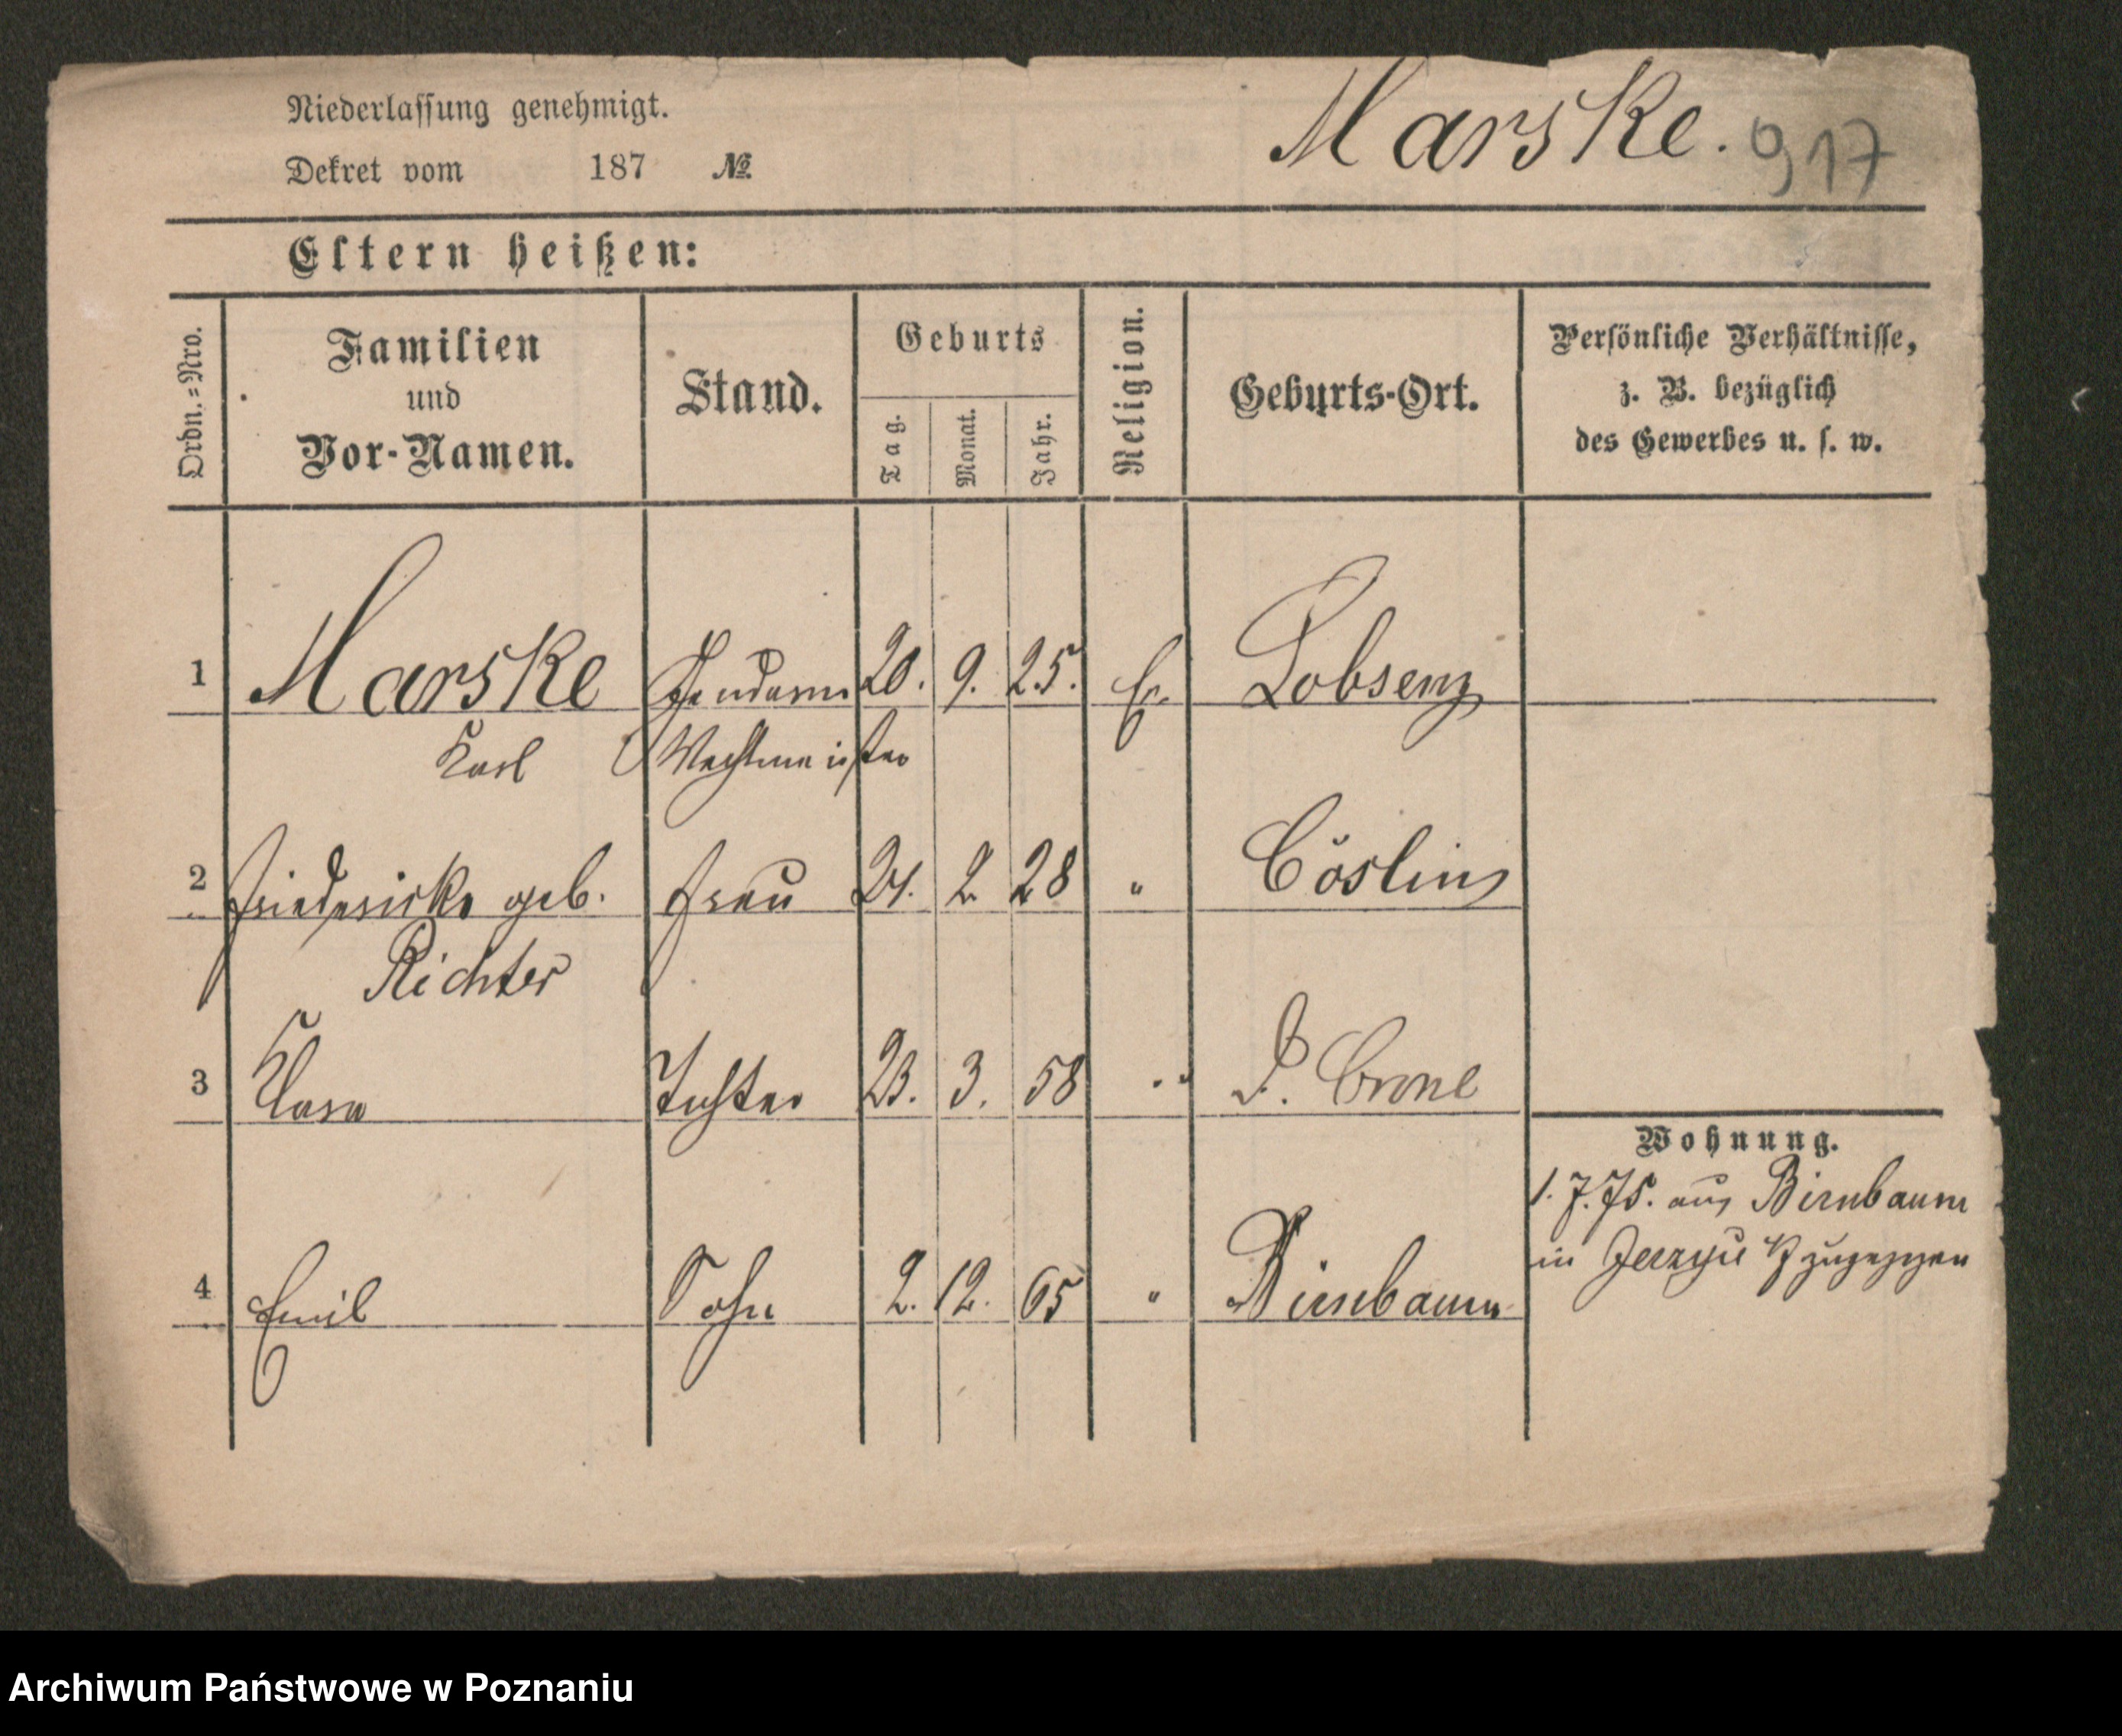 Niederlassung genehmigt.
Dekret vom 187 №
Marske. 917
Eltern heißen:
Ordn.=Nro.
Familien
und
Vor-Namen.
Stand.
Geburts
Tag.
Monat.
Jahr.
Religion.
Geburts-Ort.
Persönliche Verhältnisse,
z. B. bezüglich
des Gewerbes u. s. w.
1 Marske Gendarm 20. 9. 25. Ev. Lobsenz
Karl Wachtmeister
2 Friederike geb. Frau 24. 2. 28 " Cöslin
Richter
3 Clara Tochter 23. 3. 58 " D. Crone
Wohnung.
1. 7. 75. aus Birnbaum
in Jerzyce zugezogen
4 Emil Sohn 2. 12. 65 " Birnbaum
Archiwum Państwowe w Poznaniu